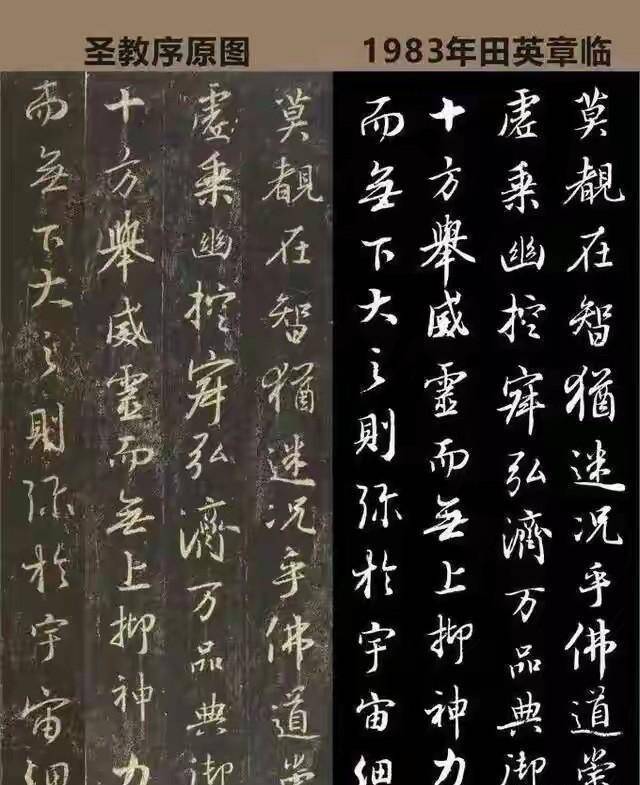 圣教序原图
莫覩在智猶迷况乎佛道崇
虛乘幽控寂弘濟万品典御
十方舉威靈而無上抑神力
而無下大之則弥於宇宙細
1983年田英章临
莫覩在智猶迷况乎佛道崇
虛乘幽控寂弘濟万品典御
十方舉威靈而無上抑神力
而無下大之則弥於宇宙細